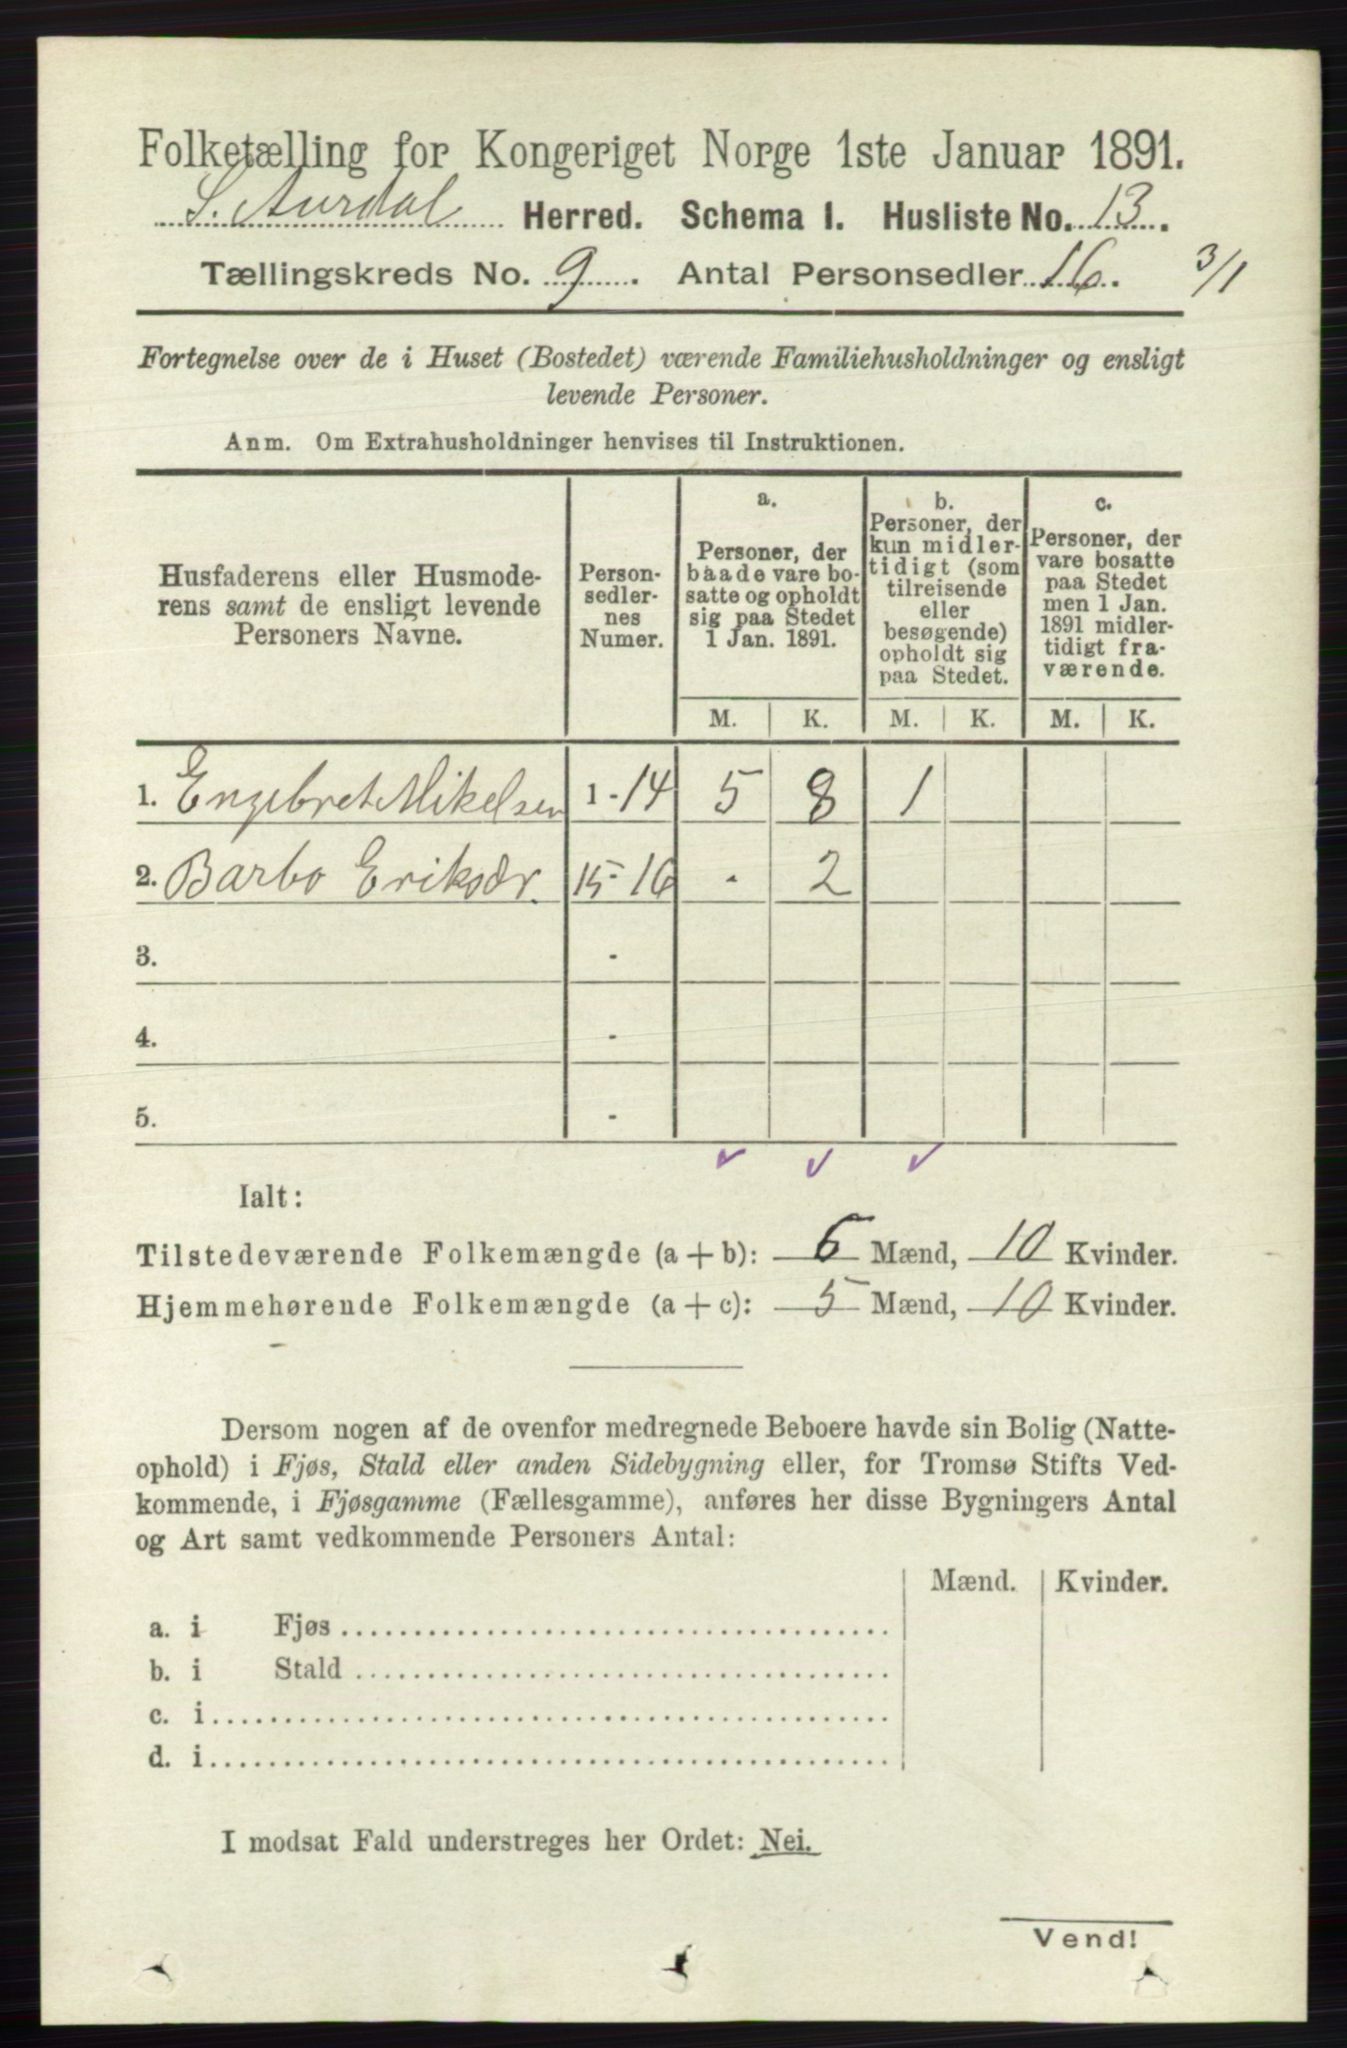 Folketælling for Kongeriget Norge 1ste Januar 1891.
S. Aurdal Herred. Schema I. Husliste No. 13.
Tællingskreds No. 9. Antal Personsedler 16. 3/1
Fortegnelse over de i Huset (Bostedet) værende Familiehusholdninger og ensligt
levende Personer.
Anm. Om Extrahusholdninger henvises til Instruktionen.
Husfaderens eller Husmode-
rens samt de ensligt levende
Personers Navne.
Person-
sedler-
nes
Numer.
a.
Personer, der
baade vare bo-
satte og opholdt
sig paa Stedet
1 Jan. 1891.
b.
Personer, der
kun midler-
tidigt (som
tilreisende
eller
besøgende)
opholdt sig
paa Stedet.
c.
Personer, der
vare bosatte
paa Stedet
men 1 Jan.
1891 midler-
tidigt fra-
værende.
M. K. M. K. M. K.
1. Engebret Mikelsen 1 - 14 5 8 1
2. Barbo Eriksdr. 15 - 16 - 2
3. -
4. -
5. -
Ialt:
Tilstedeværende Folkemængde (a + b): 6 Mænd, 10 Kvinder.
Hjemmehørende Folkemængde (a + c): 5 Mænd, 10 Kvinder.
Dersom nogen af de ovenfor medregnede Beboere havde sin Bolig (Natte-
ophold) i Fjøs, Stald eller anden Sidebygning eller, for Tromsø Stifts Ved-
kommende, i Fjøsgamme (Fællesgamme), anføres her disse Bygningers Antal
og Art samt vedkommende Personers Antal:
Mænd. Kvinder.
a. i Fjøs
b. i Stald
c. i
d. i
I modsat Fald understreges her Ordet: Nei.
Vend!